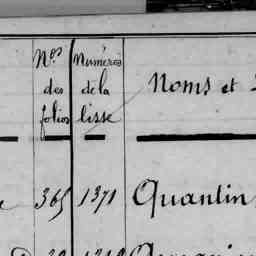 Nos des folios
Numéros de la lisse
Noms et
365 1371 Quantin